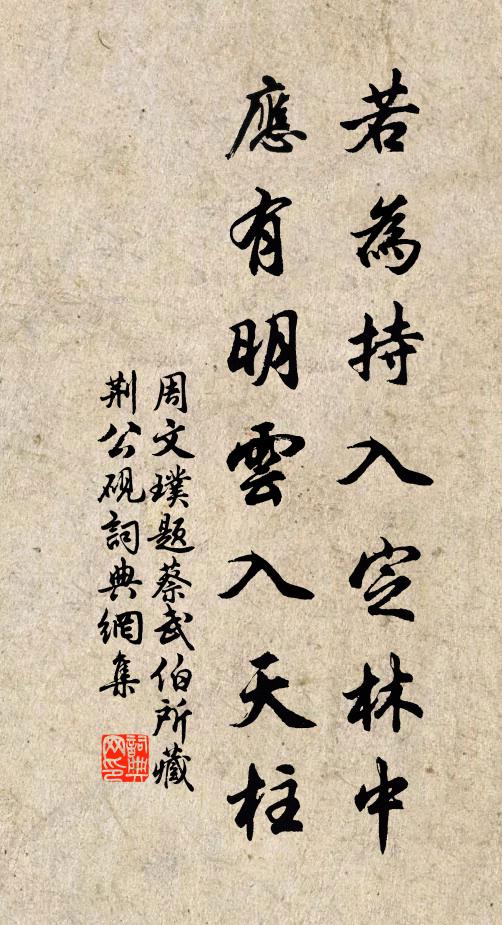 若為持入定林中
應有明雲入天柱
周文璞題蔡武伯所藏
荆公硯詞典網集
詞典
网印